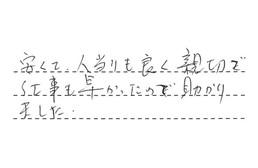 安くて、人当りも良く親切で
仕事も早かったので助かり
ました.